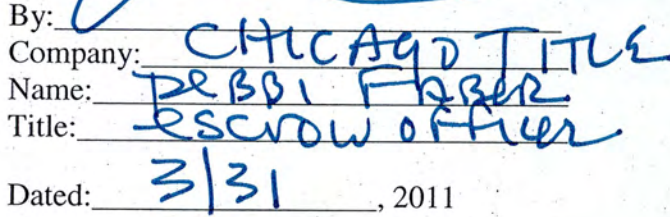 By:
Company: CHICAGO TITLE
Name: DEBBI FABER
Title: escrow officer
Dated: 3/31, 2011